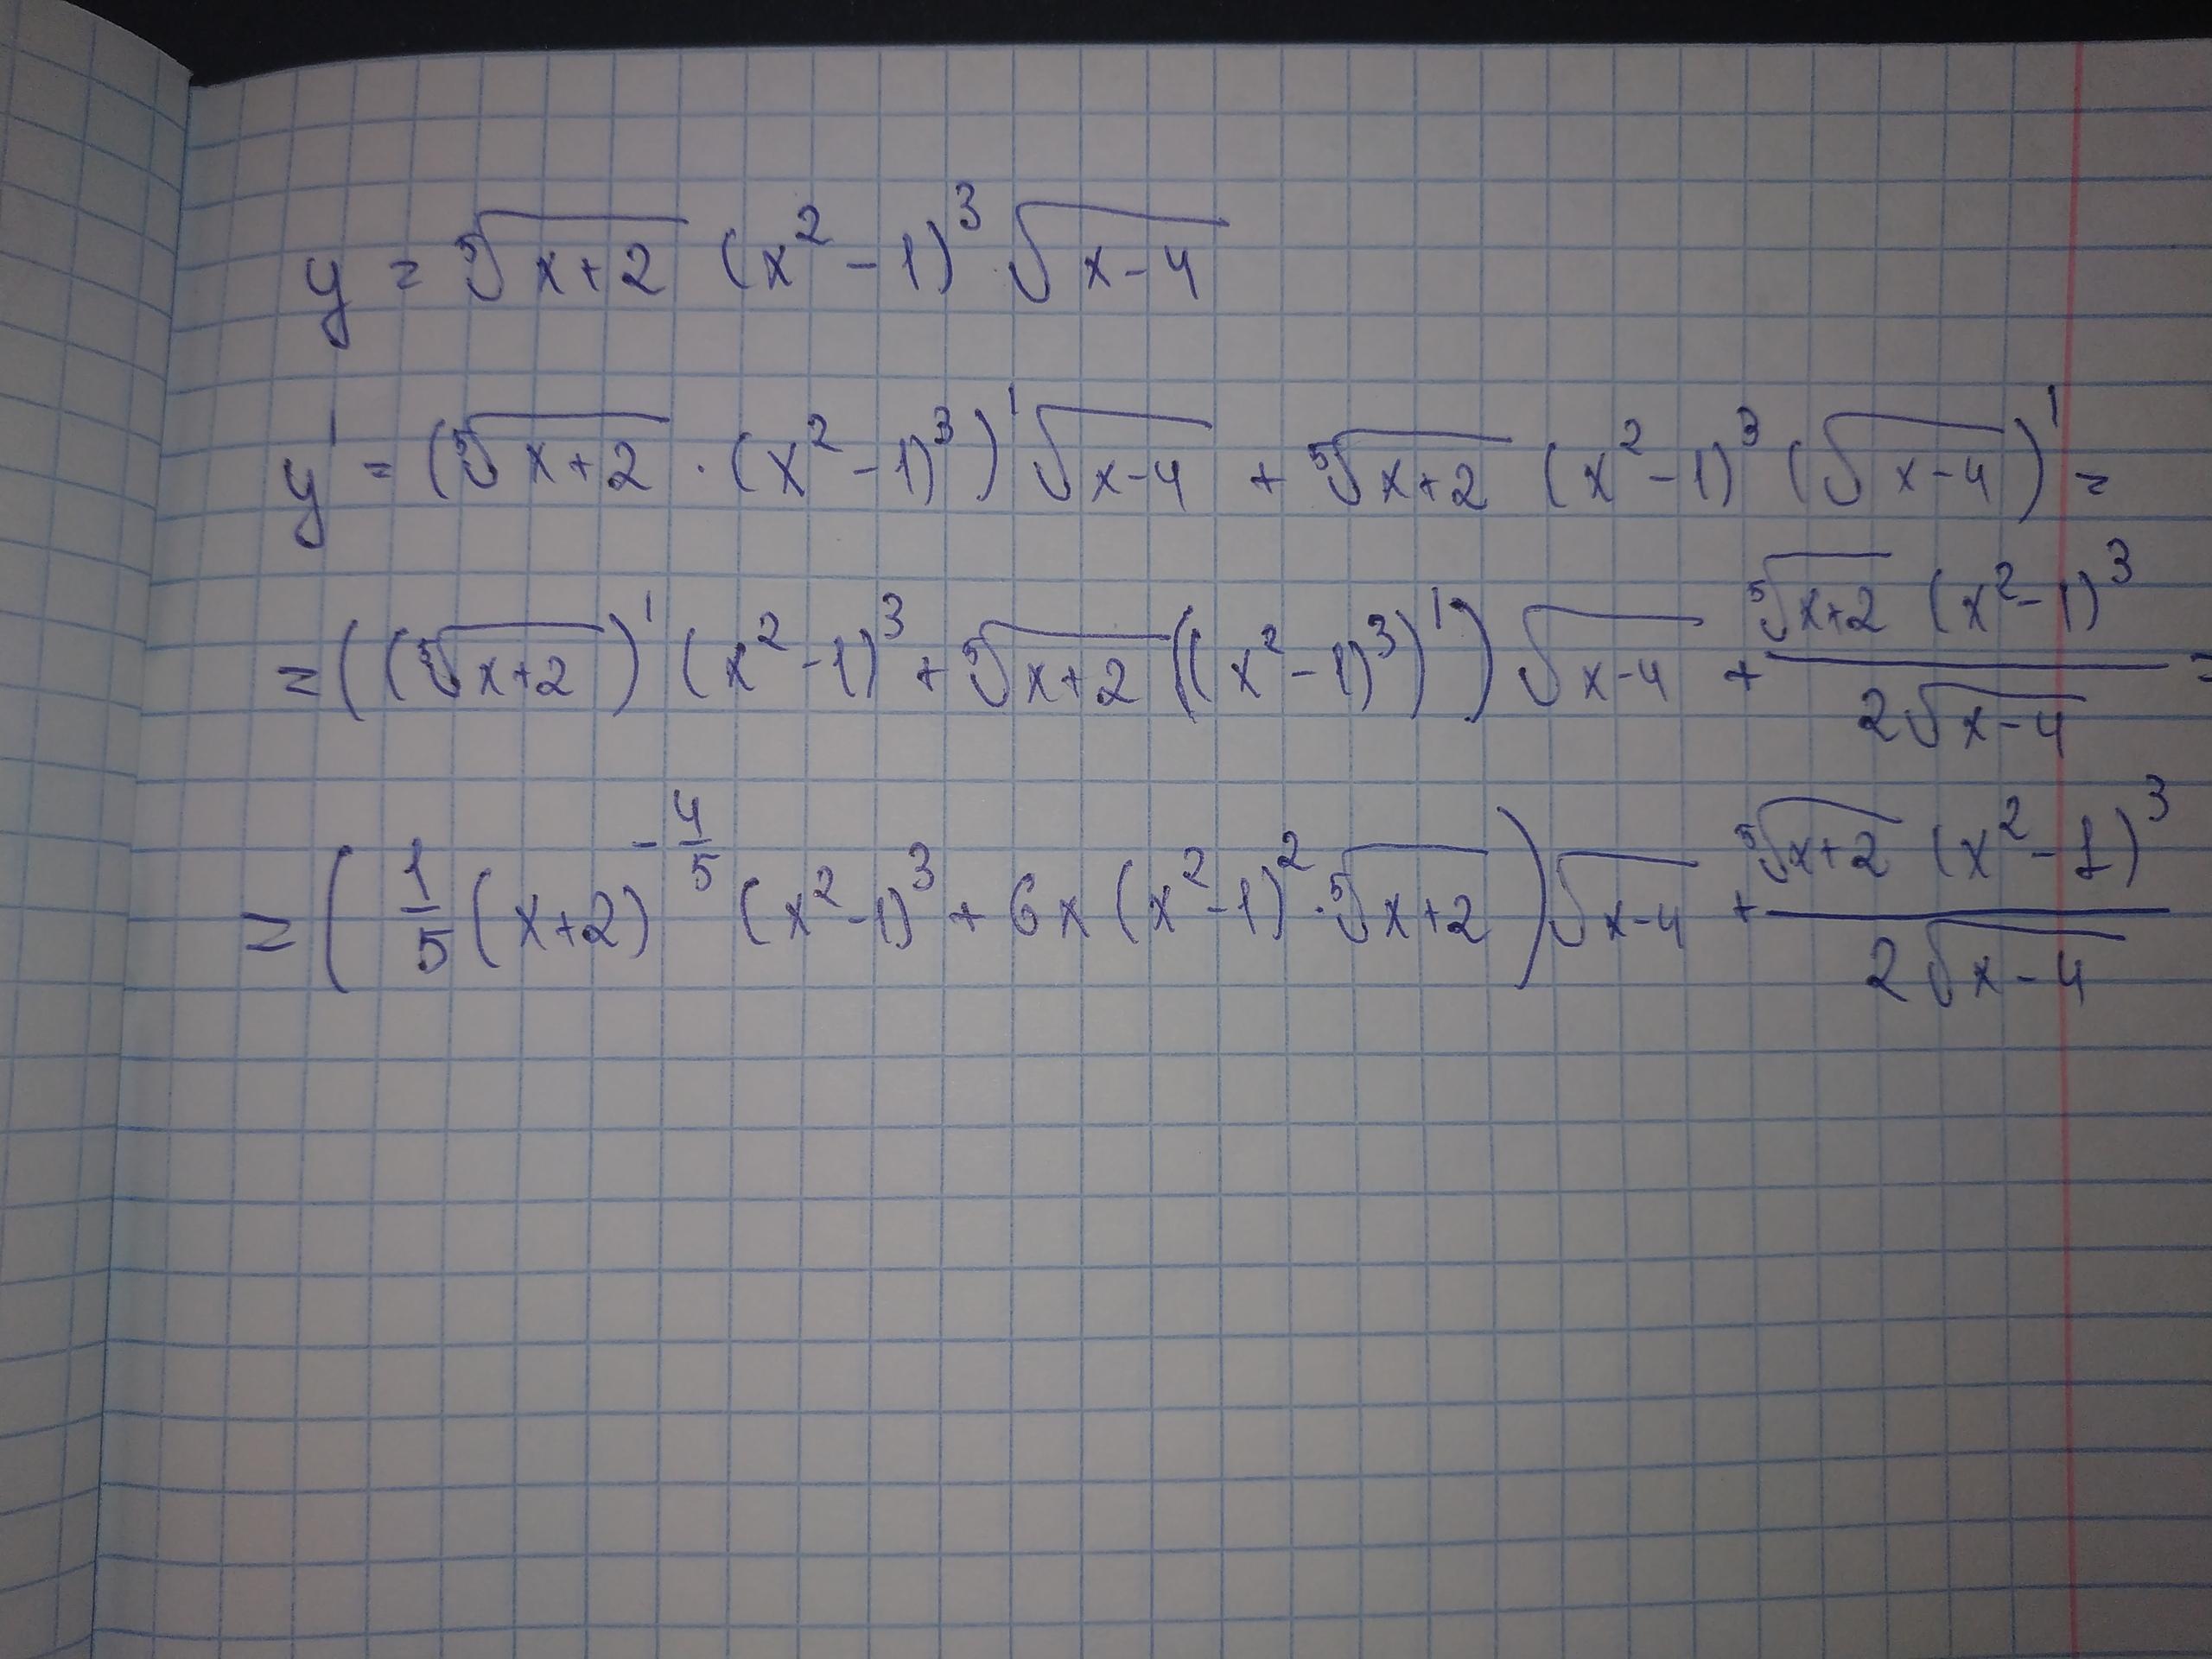 y = ⁵√(x+2) (x² - 1)³ √(x-4)
y' = (⁵√(x+2) · (x² - 1)³)' √(x-4) + ⁵√(x+2) (x² - 1)³ (√(x-4))' =
= ((⁵√(x+2))' (x² - 1)³ + ⁵√(x+2) ((x² - 1)³)') √(x-4) + (⁵√(x+2) (x² - 1)³)/(2√(x-4)) =
= (1/5 (x+2)^(-4/5) (x² - 1)³ + 6x (x² - 1)² · ⁵√(x+2)) √(x-4) + (⁵√(x+2) (x² - 1)³)/(2√(x-4))